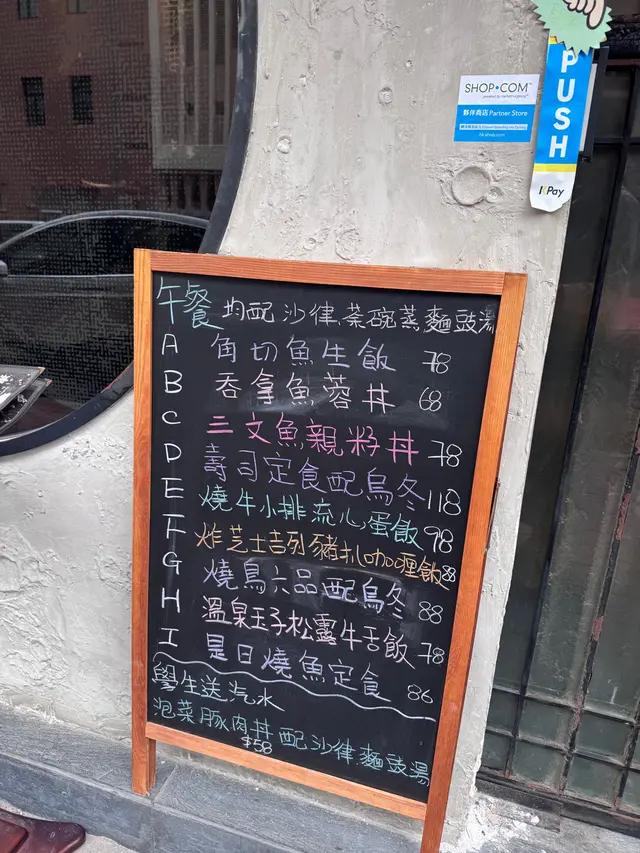 SHOP•COM
夥伴商店 Partner Store
hk.shop.com
PUSH
KPay
午餐 均配沙律,茶碗蒸,麵豉湯
A 角切魚生飯 78
B 吞拿魚蓉丼 68
C 三文魚親籽丼 78
D 壽司定食配烏冬 118
E 燒牛小排流心蛋飯 98
F 炸芝士吉列豬扒咖喱飯 88
G 燒鳥六品配烏冬 88
H 溫泉玉子松露牛舌飯 78
I 是日燒魚定食 86
學生送汽水
泡菜豚肉丼配沙律麵豉湯
$58